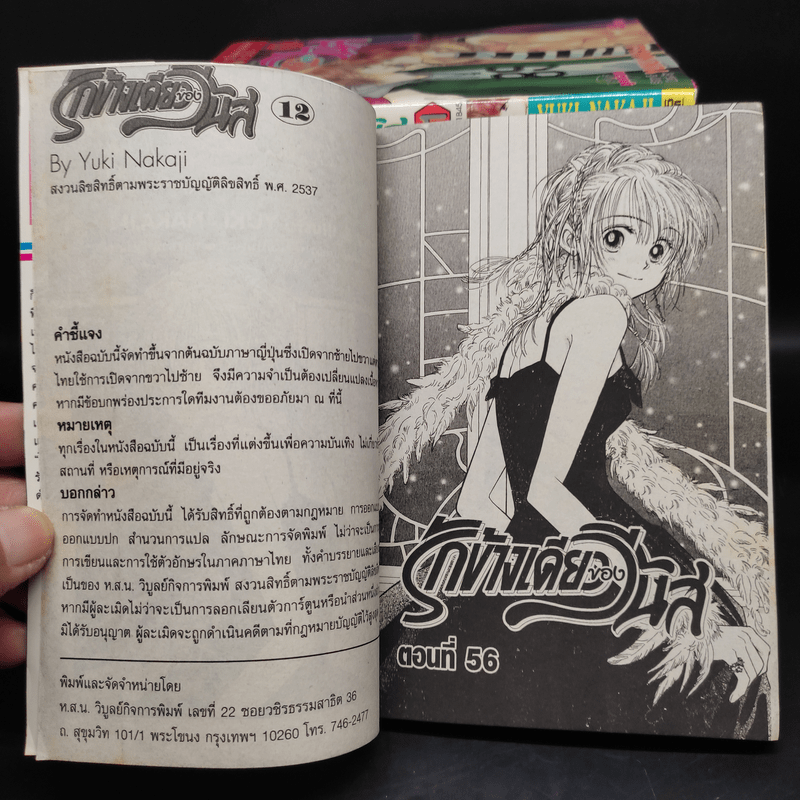 รักข้างเดียวของวีนัส 12
By Yuki Nakaji
สงวนลิขสิทธิ์ตามพระราชบัญญัติลิขสิทธิ์ พ.ศ. 2537
คำชี้แจง
หนังสือฉบับนี้จัดทำขึ้นจากต้นฉบับภาษาญี่ปุ่นซึ่งเปิดจากซ้ายไปขวา
ไทยใช้การเปิดจากขวาไปซ้าย จึงมีความจำเป็นต้องเปลี่ยนแปลง
หากมีข้อบกพร่องประการใดทีมงานต้องขออภัยมา ณ ที่นี้
หมายเหตุ
ทุกเรื่องในหนังสือฉบับนี้ เป็นเรื่องที่แต่งขึ้นเพื่อความบันเทิง
สถานที่ หรือเหตุการณ์ที่มีอยู่จริง
บอกกล่าว
การจัดทำหนังสือฉบับนี้ ได้รับสิทธิ์ที่ถูกต้องตามกฎหมาย
ออกแบบปก สำนวนการแปล ลักษณะการจัดพิมพ์ ไม่ว่าจะเป็น
การเขียนและการใช้ตัวอักษรในภาคภาษาไทย ทั้งคำบรรยาย
เป็นของ ห.ส.น. วิบูลย์กิจการพิมพ์ สงวนสิทธิ์ตามพระราชบัญญัติ
หากมีผู้ละเมิดไม่ว่าจะเป็นการลอกเลียนตัวการ์ตูนหรือนำส่วน
มิได้รับอนุญาต ผู้ละเมิดจะถูกดำเนินคดีตามที่กฎหมายบัญญัติไว้
พิมพ์และจัดจำหน่ายโดย
ห.ส.น. วิบูลย์กิจการพิมพ์ เลขที่ 22 ซอยวชิรธรรมสาธิต 36
ถ. สุขุมวิท 101/1 พระโขนง กรุงเทพฯ 10260 โทร. 746-2477
YUKI NAKAJI
รักข้างเดียวของวีนัส
ตอนที่ 56